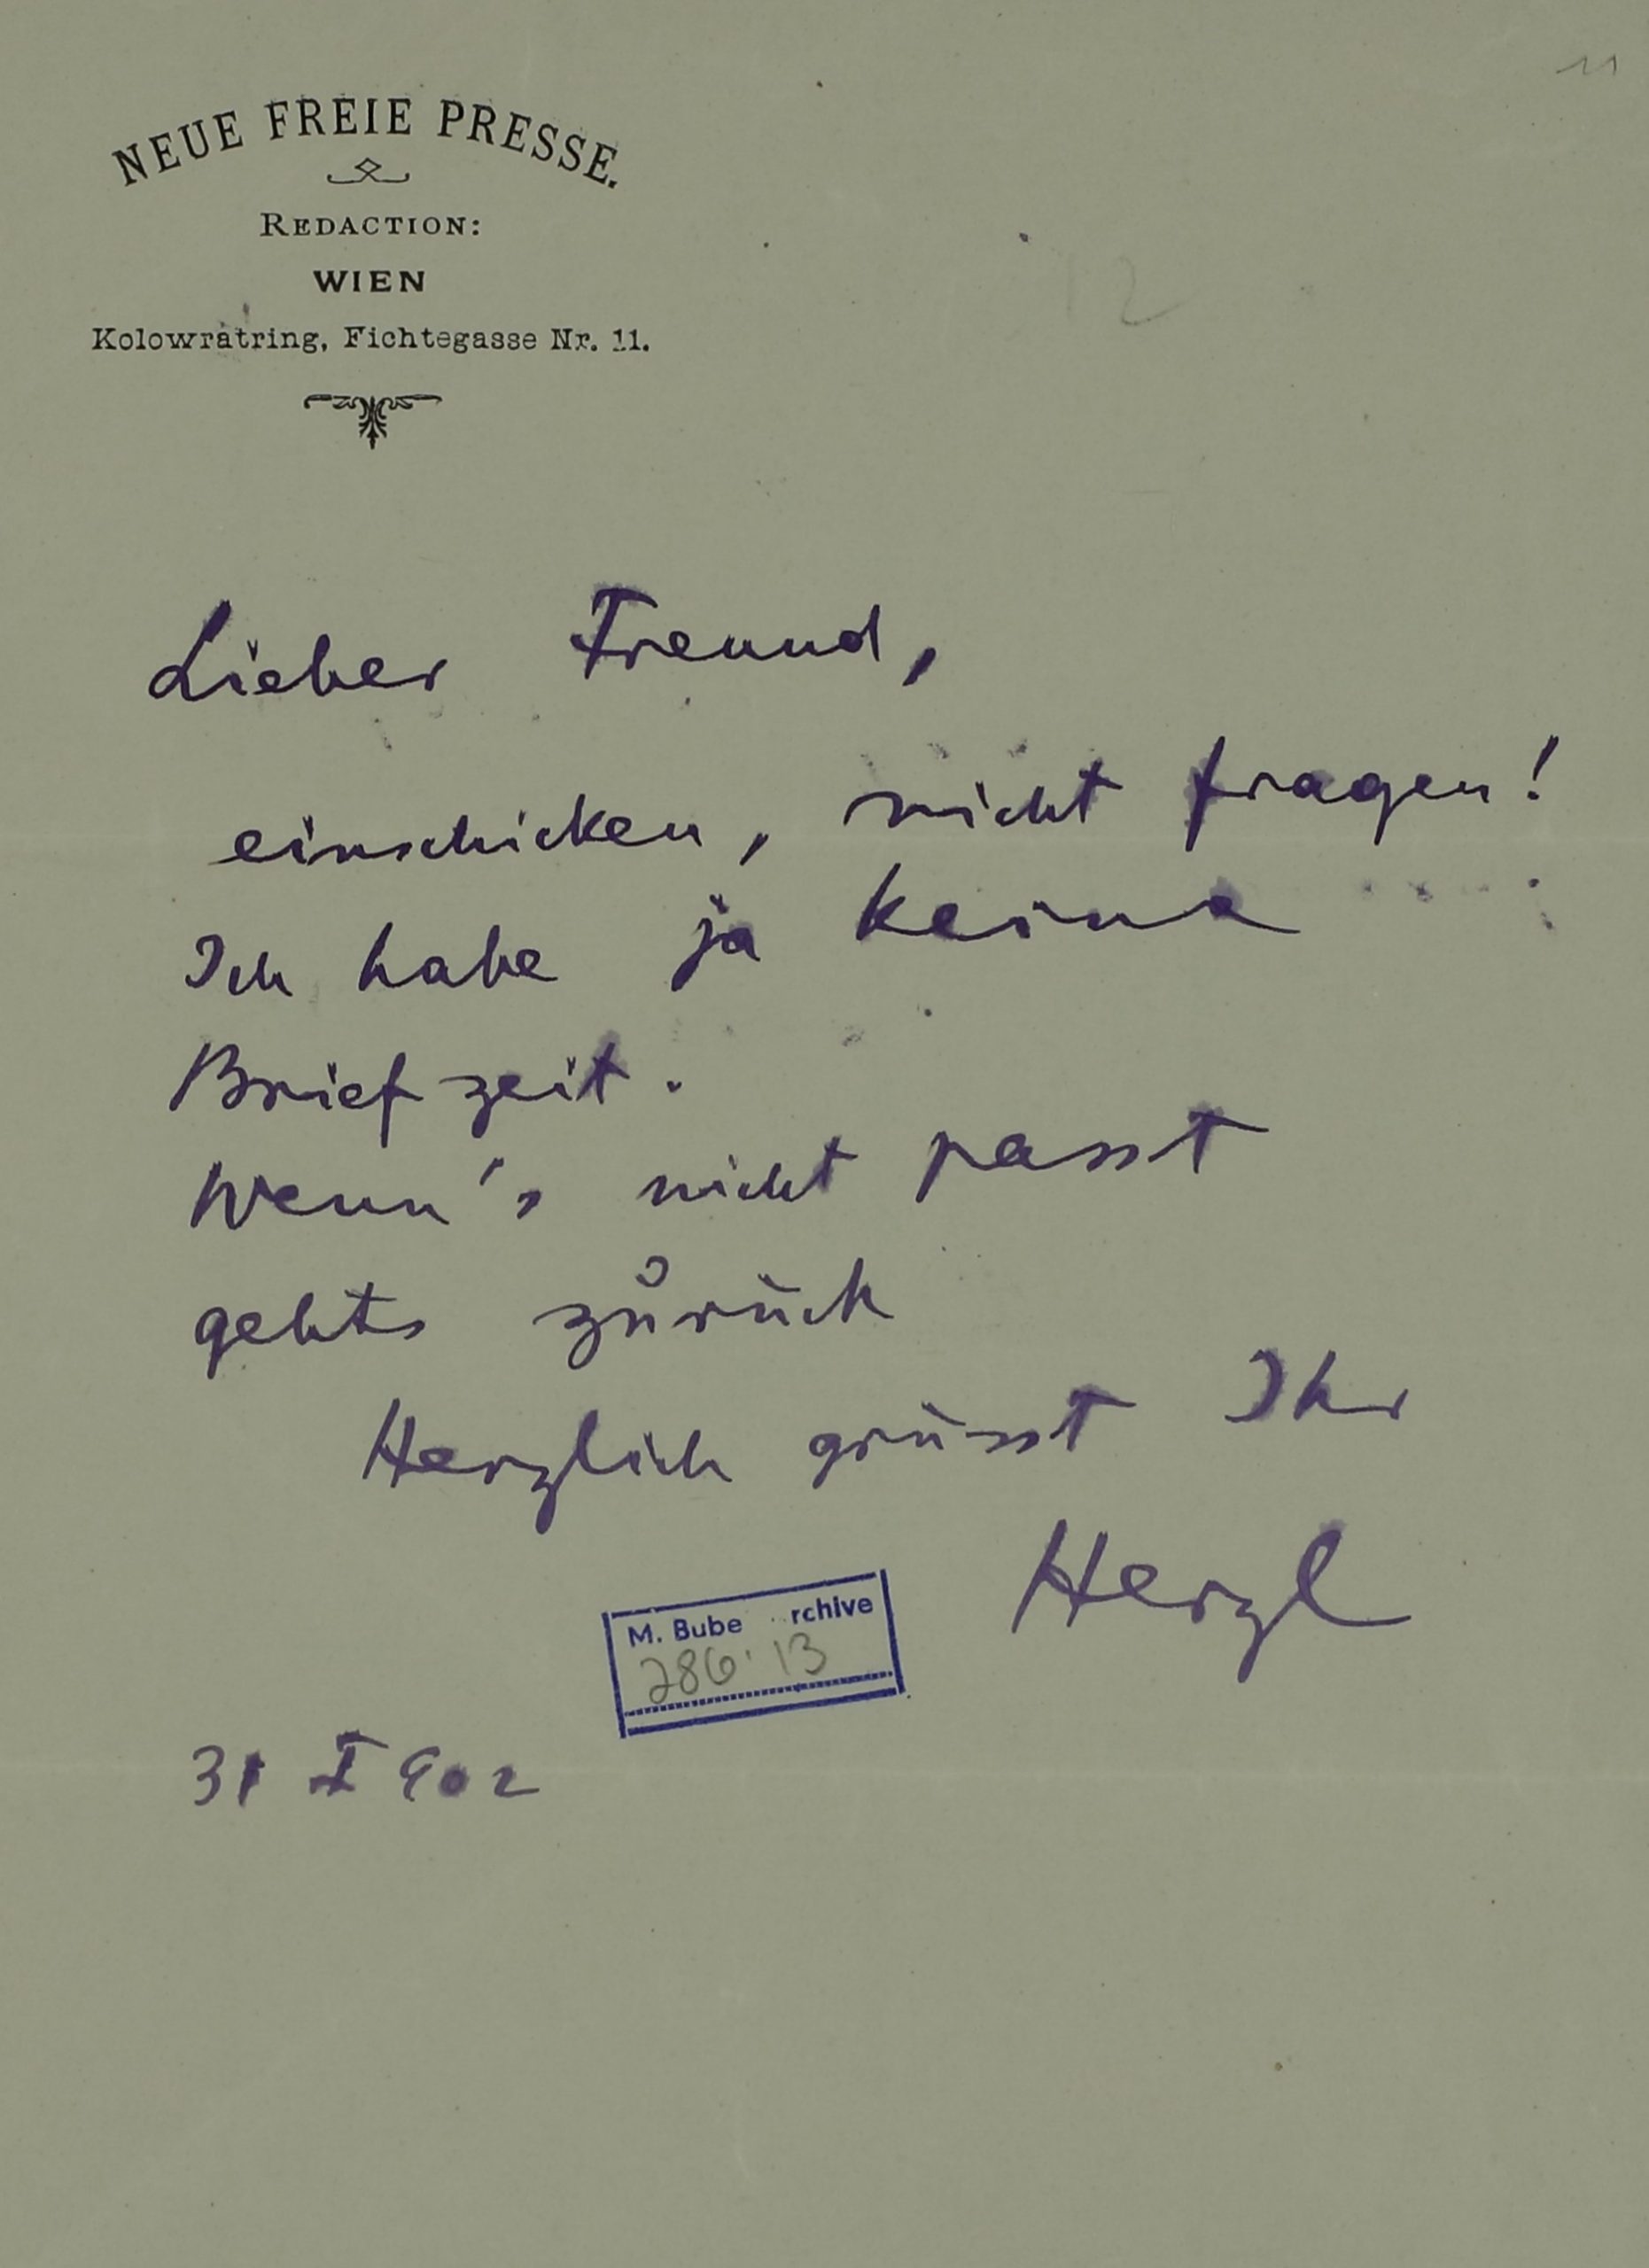 11
NEUE FREIE PRESSE.
REDACTION:
WIEN
12
Kolowratring, Fichtegasse Nr. 11.
Lieber Freund,
einschicken, nicht fragen!
Ich habe ja keine
Briefzeit.
Wenn's nicht passt
gehts zurück
Herzlich grüsst Ihr
Herzl
M. Bube rchive
286:13
31 I 902